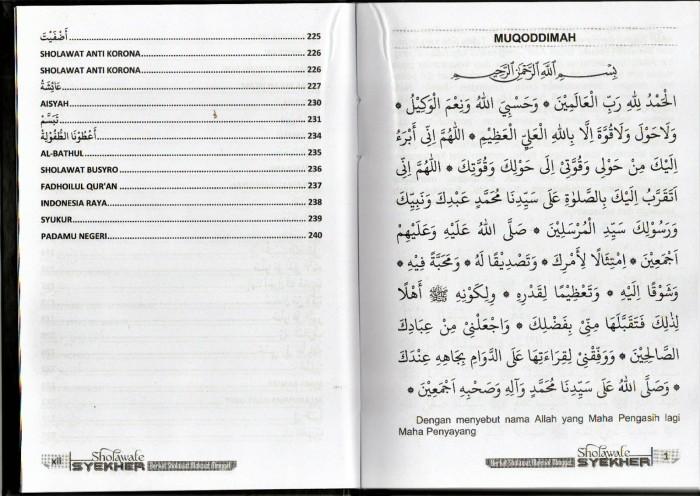 أَضْفَيْتَ 225
SHOLAWAT ANTI KORONA 226
SHOLAWAT ANTI KORONA 226
عَائِشَةُ 227
AISYAH 230
تَبَسَّمْ 231
أَعْطُوْنَا الطُّفُوْلَةُ 234
AL-BATHUL 235
SHOLAWAT BUSYRO 236
FADHOILUL QUR'AN 237
INDONESIA RAYA 238
SYUKUR 239
PADAMU NEGERI 240
xii
Sholawate
SYEKHER
Berkat Sholawat Mahmat Minggat
MUQODDIMAH
بِسْمِ اللهِ الرَّحْمٰنِ الرَّحِيْمِ
اَلْحَمْدُ لِلهِ رَبِّ الْعَالَمِيْنَ * وَحَسْبِيَ اللهُ وَنِعْمَ الْوَكِيْلُ *
وَلَاحَوْلَ وَلَاقُوَّةَ اِلَّا بِاللهِ الْعَلِيِّ الْعَظِيْمِ * اَللّٰهُمَّ اِنِّى أَبْرَءُ
اِلَيْكَ مِنْ حَوْلِى وَقُوَّتِىْ اِلَى حَوْلِكَ وَقُوَّتِكَ * اَللّٰهُمَّ اِنِّى
اَتَقَرَّبُ اِلَيْكَ بِالصَّلٰوةِ عَلَى سَيِّدِنَا مُحَمَّدٍ عَبْدِكَ وَنَبِيِّكَ
وَرَسُوْلِكَ سَيِّدِ الْمُرْسَلِيْنَ * صَلَّى اللهُ عَلَيْهِ وَعَلَيْهِمْ
اَجْمَعِيْنَ * اِمْتِثَالًا لِأَمْرِكَ * وَتَصْدِيْقًا لَهُ * وَمَحَبَّةً فِيْهِ *
وَشَوْقًا اِلَيْهِ * وَتَعْظِيْمًا لِقَدْرِهِ * وَلِكَوْنِهِ ﷺ أَهْلًا
لِذٰلِكَ فَتَقَبَّلْهَا مِنِّىْ بِفَضْلِكَ * وَاجْعَلْنِىْ مِنْ عِبَادِكَ
الصَّالِحِيْنَ * وَوَفِّقْنِىْ لِقِرَاءَتِهَا عَلَى الدَّوَامِ بِجَاهِهِ عِنْدَكَ
* وَصَلَّى اللهُ عَلَى سَيِّدِنَا مُحَمَّدٍ وَآلِهِ وَصَحْبِهِ اَجْمَعِيْنَ *
Dengan menyebut nama Allah yang Maha Pengasih lagi
Maha Penyayang
Sholawate
SYEKHER
1